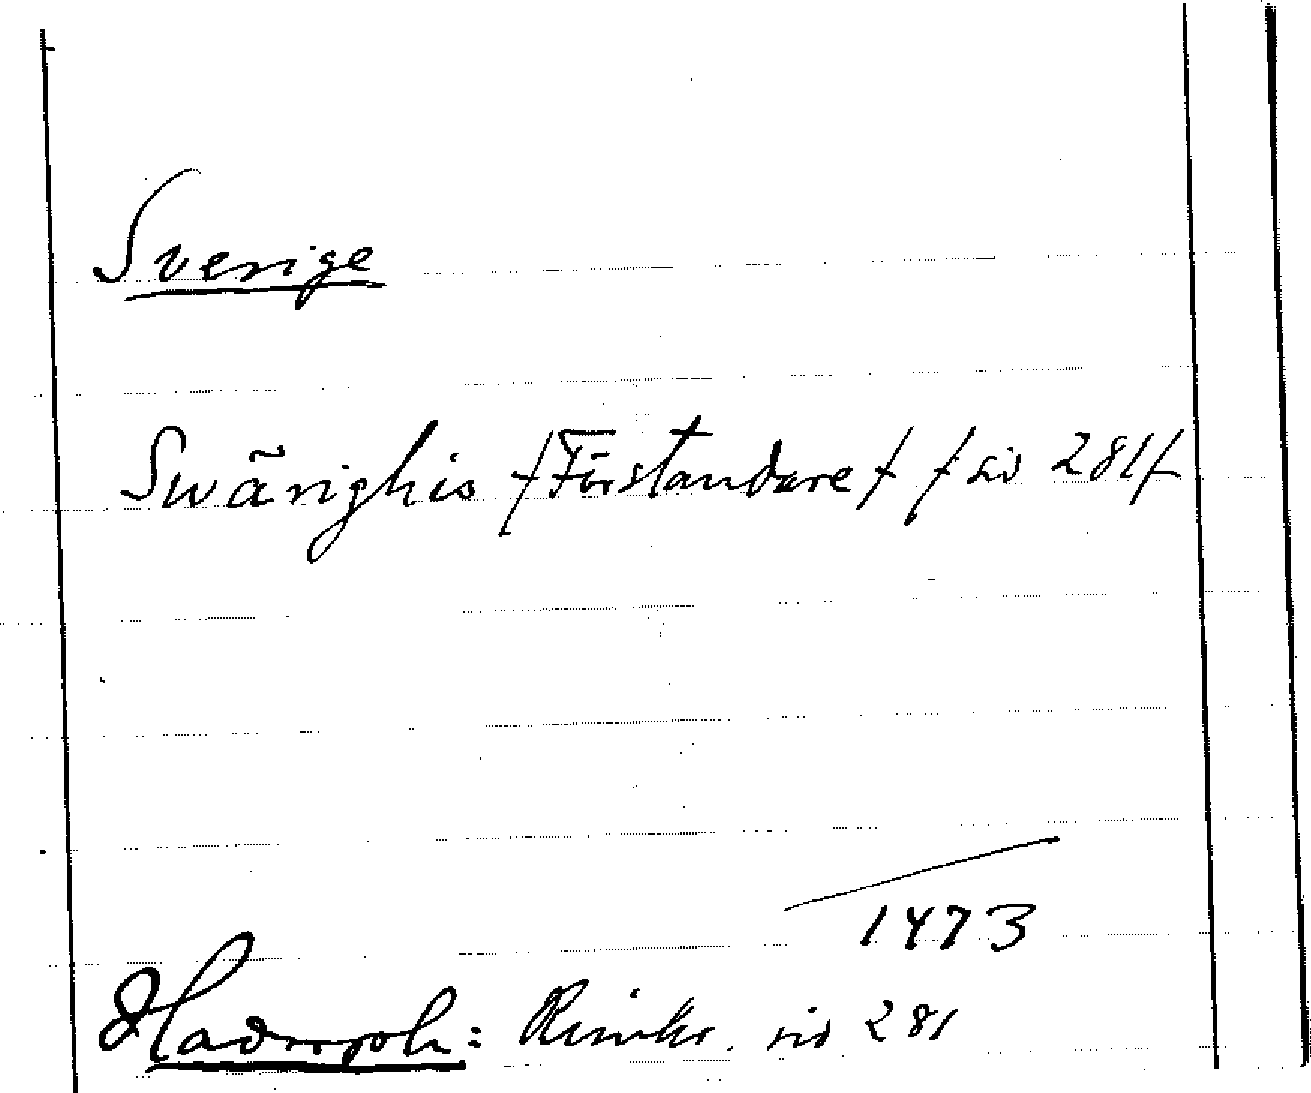 Sverige
Swãrighis /Förstandare/ /sid 281/
1473
Hadorph: Rimkr. sid 281